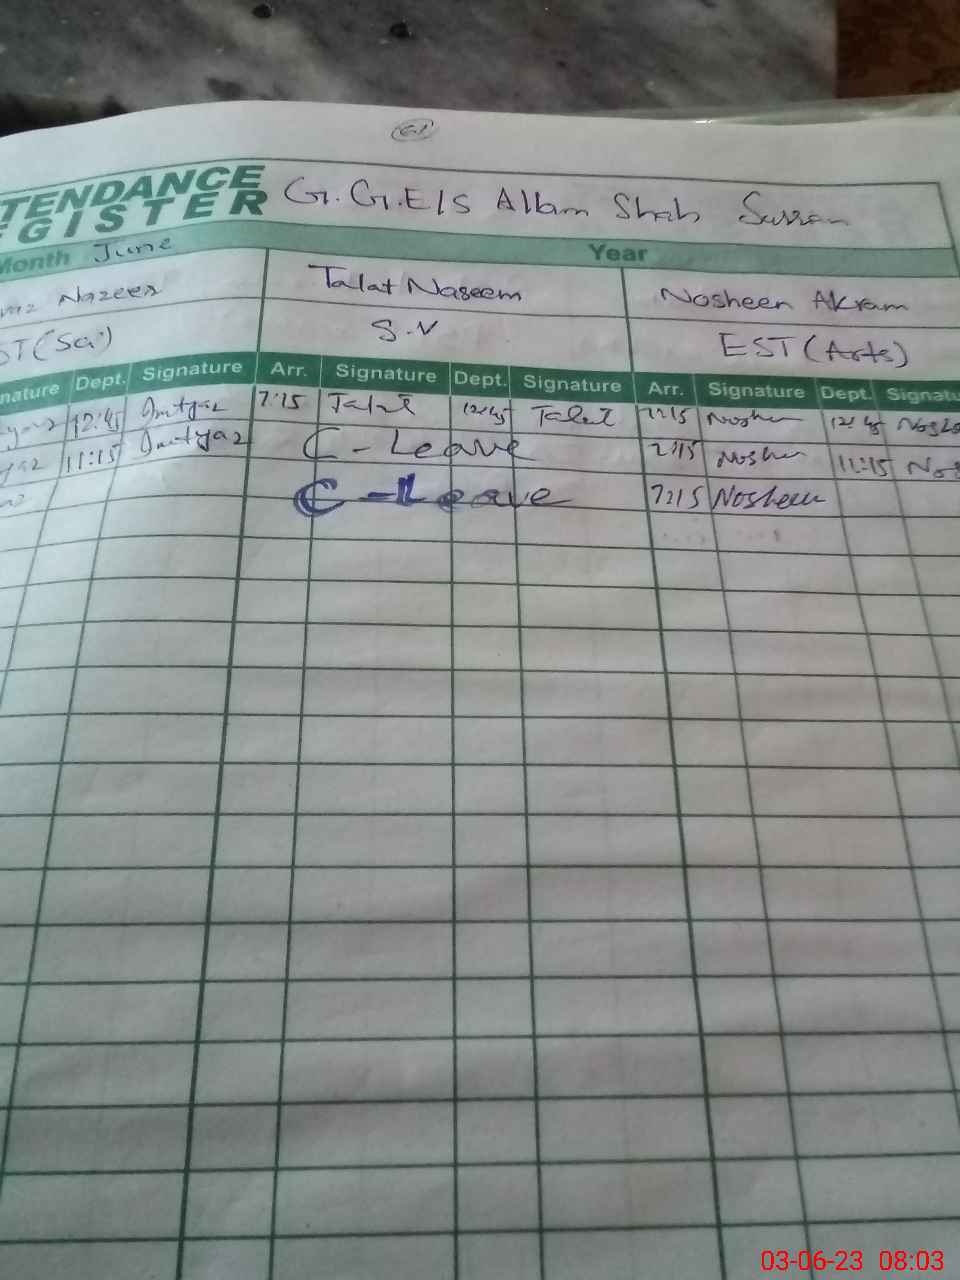 61
TENDANCE
GISTER
G.G.E/S Allam Shah Surran
Month June Year
Nazeer Talat Naseem Nosheen Akram
ST (Sci) S.V EST (Arts)
nature Dept. Signature Arr. Signature Dept. Signature Arr. Signature Dept. Signatu
yaz 12:45 Imtyaz 7:15 Talat 12:45 Talat 7:15 Noshen 12:45 Nosh
yaz 11:15 Imtyaz C-Leave 7:15 Noshen 11:15 Nos
C-Leave 7:15 Nosheen
03-06-23 08:03